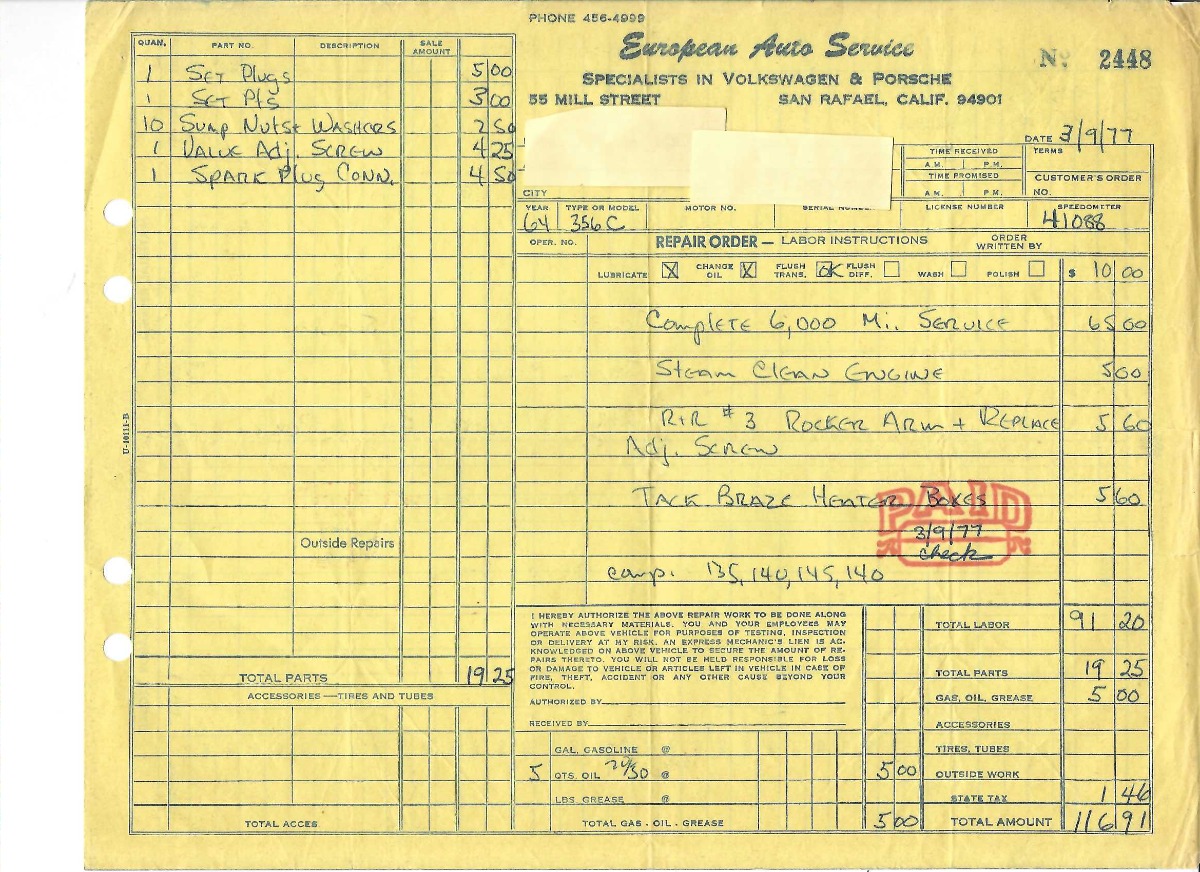 PHONE 456-4999
European Auto Service
SPECIALISTS IN VOLKSWAGEN & PORSCHE
55 MILL STREET SAN RAFAEL, CALIF. 94901
Nº 2448
DATE 3/9/77
QUAN. PART NO. DESCRIPTION SALE AMOUNT
1 SET Plugs 5 00
1 SET Pts 3 00
10 Sump Nuts + WASHERS 2 50
1 VALVE Adj. SCREW 4 25
1 SPARK Plug CONN. 4 50
Outside Repairs
TOTAL PARTS 19 25
ACCESSORIES—TIRES AND TUBES
TOTAL ACCES
U-10111-B
TIME RECEIVED
A.M. P.M.
TIME PROMISED
A.M. P.M.
TERMS
CUSTOMER'S ORDER NO.
CITY
YEAR 64 TYPE OR MODEL 356C MOTOR NO. SERIAL NUMBER LICENSE NUMBER SPEEDOMETER 41088
OPER. NO. REPAIR ORDER — LABOR INSTRUCTIONS ORDER WRITTEN BY
LUBRICATE X CHANGE OIL X FLUSH TRANS. OK FLUSH DIFF. WASH POLISH $ 10 00
Complete 6,000 Mi. SERVICE 65 00
STEAM CLEAN ENGINE 5 00
R+R #3 ROCKER ARM + REPLACE 5 60
Adj. SCREW
TACK BRAZE HEATER BOXES 5 60
PAID
3/9/77
check
comp. 135, 140, 145, 140
I HEREBY AUTHORIZE THE ABOVE REPAIR WORK TO BE DONE ALONG
WITH NECESSARY MATERIALS. YOU AND YOUR EMPLOYEES MAY
OPERATE ABOVE VEHICLE FOR PURPOSES OF TESTING, INSPECTION
OR DELIVERY AT MY RISK. AN EXPRESS MECHANIC'S LIEN IS AC-
KNOWLEDGED ON ABOVE VEHICLE TO SECURE THE AMOUNT OF RE-
PAIRS THERETO. YOU WILL NOT BE HELD RESPONSIBLE FOR LOSS
OR DAMAGE TO VEHICLE OR ARTICLES LEFT IN VEHICLE IN CASE OF
FIRE, THEFT, ACCIDENT OR ANY OTHER CAUSE BEYOND YOUR
CONTROL.
AUTHORIZED BY
RECEIVED BY
GAL. GASOLINE @
5 QTS. OIL 20/50 @ 5 00
LBS. GREASE @
TOTAL GAS - OIL - GREASE 5 00
TOTAL LABOR 91 20
TOTAL PARTS 19 25
GAS, OIL, GREASE 5 00
ACCESSORIES
TIRES, TUBES
OUTSIDE WORK
STATE TAX 1 46
TOTAL AMOUNT 116 91